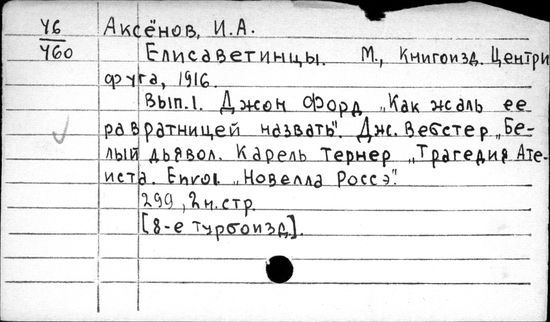 У6
У60
Аксёнов, И.А.
Елисаветинцы. М., Книгоизд. Центри
фуга, 1916.
Вып.1. Джон Форд „Как жаль ее
развратницей назвать". Дж. Вебстер „Бе-
лый дьявол. Карель Тернер „Трагедия Ате-
иста. Envoi „Новелла Россэ".
299, 2н.стр.
[8-е турбоизд].